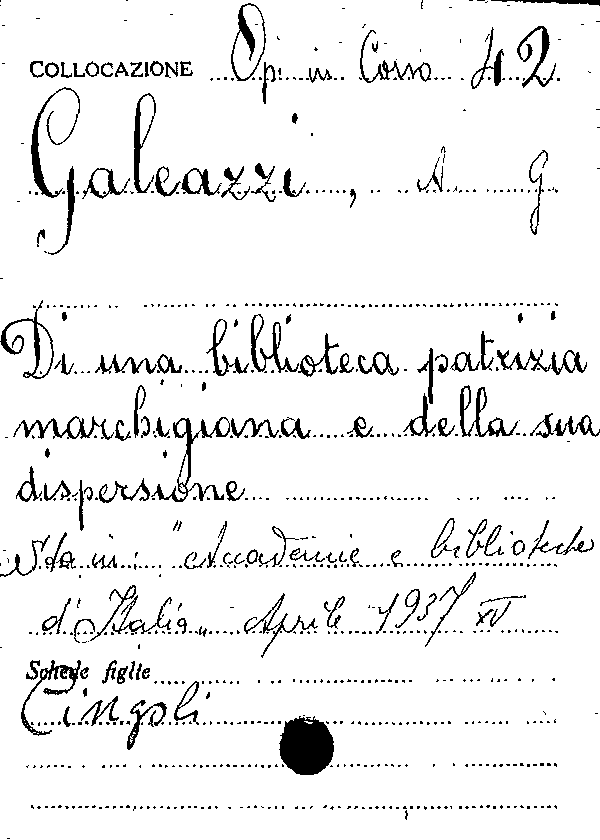 COLLOCAZIONE Op. in Corso 42
Galeazzi, A G
Di una biblioteca patrizia
marchigiana e della sua
dispersione
Sta in: "Accademie e biblioteche
d'Italia" Aprile 1937 XV
Schede figlie
Cingoli